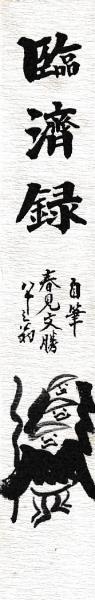 臨済録
自筆
春見文勝
八十三翁